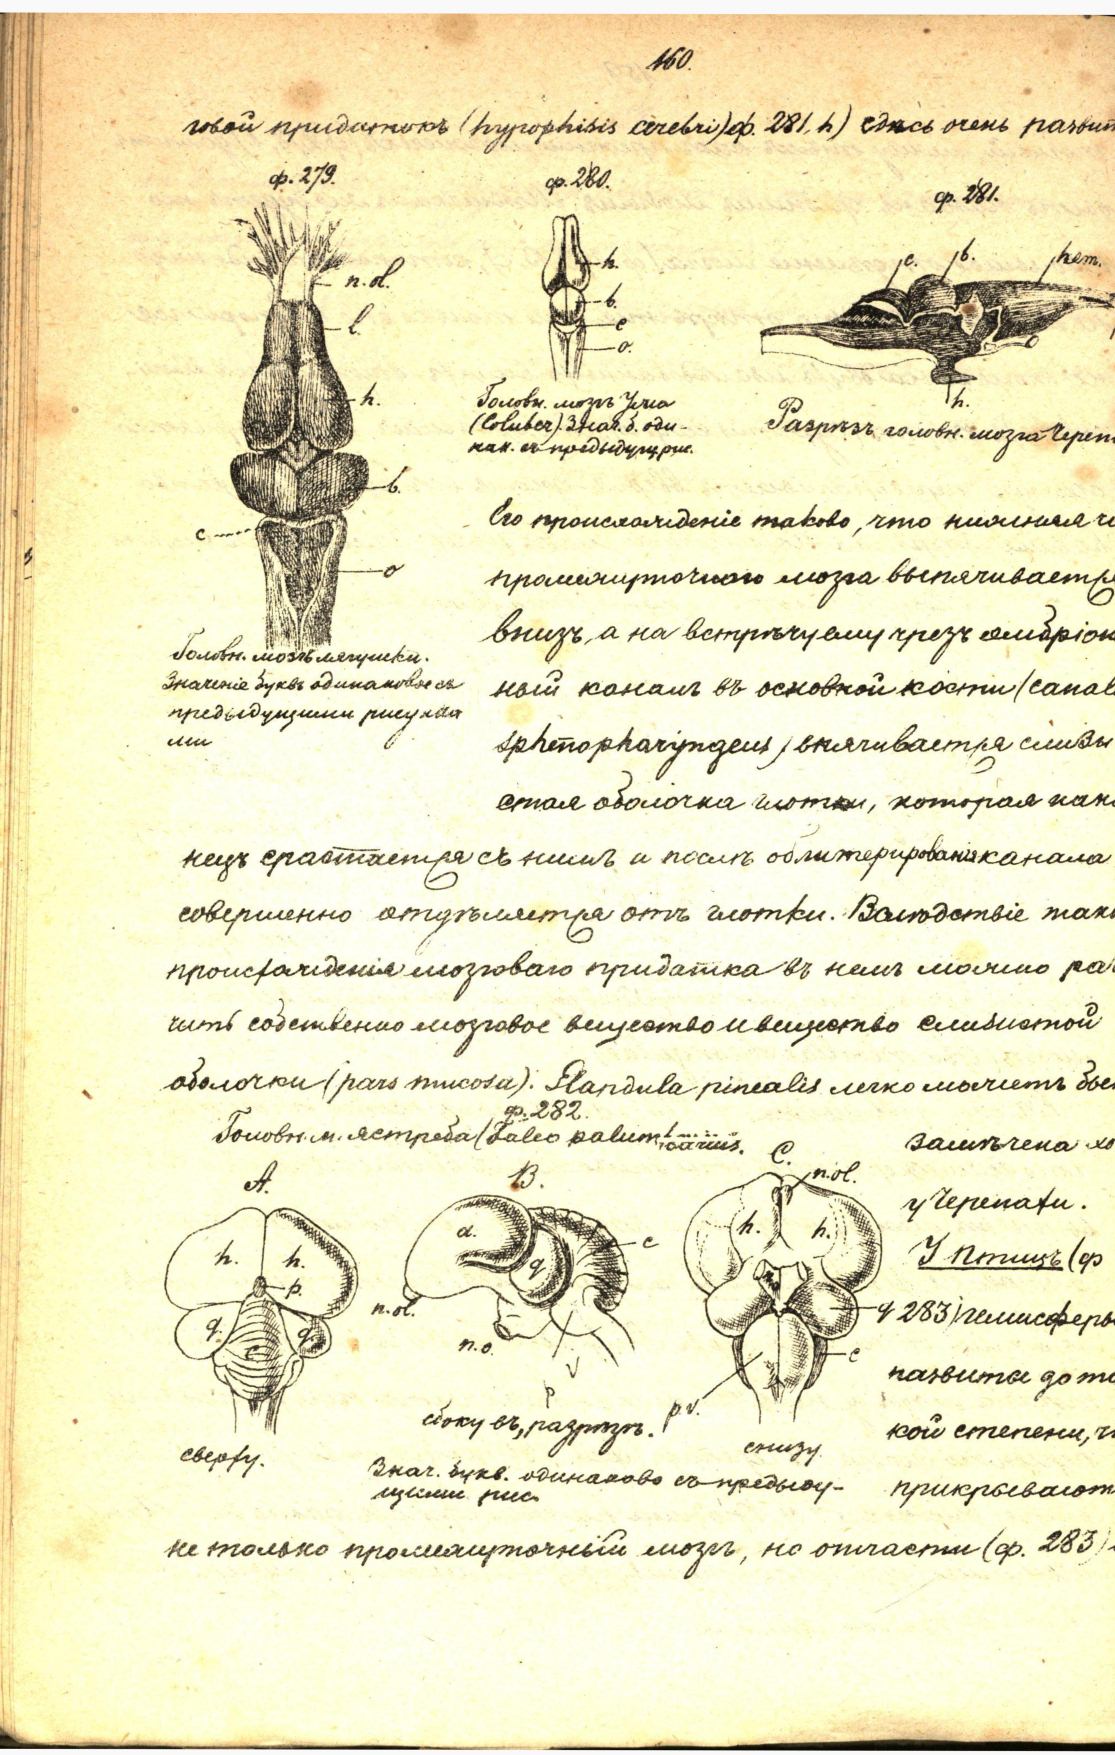 160.
говой придатокъ (hypophisis cerebri) ф. 281, h) сдѣсь очень развит
ф. 279.
ф. 280.
ф. 281.
n. ol.
l.
h.
b.
c
o
h.
b.
c
o.
c.
b.
hem.
h.
Головн. мозгъ Ужа
(Coluber). Знач. б. оди-
нак. съ предыдущ. рис.
Разрѣзъ головн. мозга Череп
Головн. мозгъ лягушки.
Значеніе буквъ одинаковое съ
предыдущими рисунка
ми
Его происхожденіе таково, что нижняя ч
промежуточнаго мозга выпячивается
внизъ, а на встрѣчу ему чрезъ эмбріон
ный каналъ въ основной кости (canal
sphenopharyngeus) впячивается слизи
стая оболочка глотки, которая нако
нецъ срастается съ нимъ и послѣ облитерированія канала
совершенно отдѣляется отъ глотки. Вслѣдствіе так
происхожденія мозговаго придатка въ немъ можно ра
чить собственно мозговое вещество и вещество слизистой
оболочки (pars mucosa). Glandula pinealis легко можетъ бы
ф. 282.
Головн. м. ястреба (Falco palumbarius.
замѣчена
у Черепахи.
У Птицъ (ф
283) гемисферы
развиты до та
кой степени,
прикрывают
A.
h.
h.
p.
q.
q.
c
сверху.
B.
d.
q
c
n. ol.
n. o.
сбоку въ разрѣзѣ.
C.
n. ol.
h.
h.
q
c
p. v.
снизу.
Знач. букв. одинаково съ предыду-
щими рис.
не только промежуточный мозгъ, но отчасти (ф. 283)